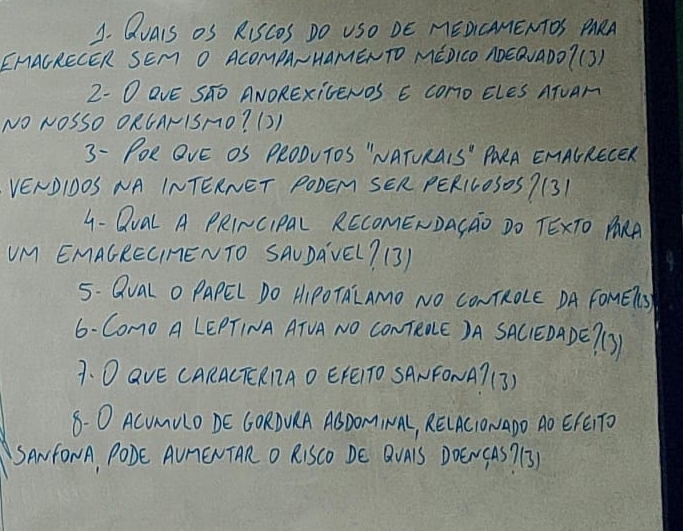 1. QUAIS OS RISCOS DO USO DE MEDICAMENTOS PARA
EMAGRECER SEM O ACOMPANHAMENTO MÉDICO ADEQUADO?(3)
2- O QUE SÃO ANOREXÍGENOS E COMO ELES ATUAM
NO NOSSO ORGANISMO?(3)
3- POR QUE OS PRODUTOS "NATURAIS" PARA EMAGRECER
VENDIDOS NA INTERNET PODEM SER PERIGOSOS?(3)
4- QUAL A PRINCIPAL RECOMENDAÇÃO DO TEXTO PARA
UM EMAGRECIMENTO SAUDÁVEL?(3)
5- QUAL O PAPEL DO HIPOTÁLAMO NO CONTROLE DA FOME?(3)
6- COMO A LEPTINA ATUA NO CONTROLE DA SACIEDADE?(3)
7. O QUE CARACTERIZA O EFEITO SANFONA?(3)
8- O ACUMULO DE GORDURA ABDOMINAL, RELACIONADO AO EFEITO
SANFONA, PODE AUMENTAR O RISCO DE QUAIS DOENÇAS?(3)